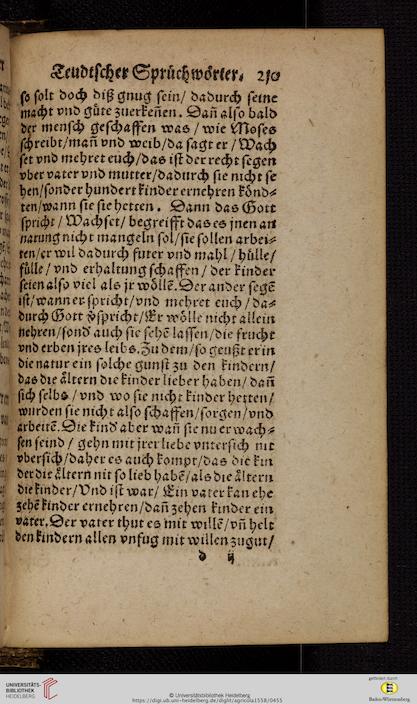 Teudtscher Sprüchwörter. 210
so solt doch diß gnug sein/ dadurch seine
macht vnd gůte zuerkeñen. Dañ also bald
der mensch geschaffen was / wie Moses
schreibt/mañ vnd weib/da sagt er / Wach
set vnd mehret euch/das ist der recht segen
vber vater vnd mutter/dadurch sie nicht se
hen/sonder hundert kinder ernehren könd⸗
ten/wann sie sie hetten. Dann das Gott
spricht / Wachset/ begreifft das es jnen an
narung nicht mangeln sol/sie sollen arbei⸗
ten/er wil dadurch futer vnd mahl / hülle/
fülle / vnd erhaltung schaffen / der kinder
seien also viel als jr wöllē. Der ander segē
ist/wann er spricht/vnd mehret euch / da⸗
durch Gott v̓spricht/Er wölle nicht allein
nehren/sond̓ auch sie sehē lassen/die frucht
vnd erben jres leibs. Zu dem/so geußt er in
die natur ein solche gunst zu den kindern/
das die åltern die kinder lieber haben/ dañ
sich selbs / vnd wo sie nicht kinder hetten/
wurden sie nicht also schaffen/sorgen/vnd
arbeitē. Die kind̓ aber wañ sie nu er wach⸗
sen seind / gehn mit jrer liebe vntersich nit
vbersich/daher es auch kompt/das die kin
der die åltern nit so lieb habē/als die åltern
die kinder/Vnd ist war/ Ein vater kan ehe
zehē kinder ernehren/dañ zehen kinder ein
vater. Der vater thut es mit willē/vñ helt
den kindern allen vnfug mit willen zugut/
d ij
UNIVERSITÄTS-
BIBLIOTHEK
HEIDELBERG
© Universitätsbibliothek Heidelberg
https://digi.ub.uni-heidelberg.de/diglit/agricola1558/0455
gefördert durch
Baden-Württemberg